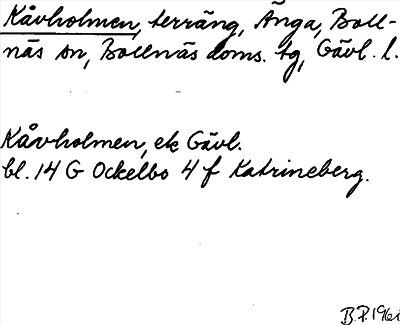 Kåvholmen, terräng, Änga, Boll-
näs sn, Bollnäs doms. tg, Gävl. l.
Kåvholmen, ek Gävl.
bl. 14 G Ockelbo 4 f Katrineberg.
B.P. 1961